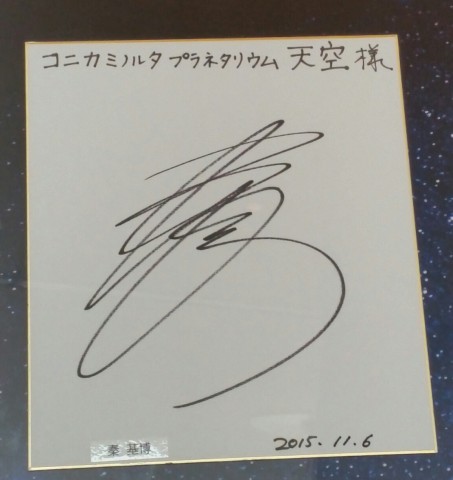 コニカミノルタ プラネタリウム 天空 様
秦 基博
2015.11.6